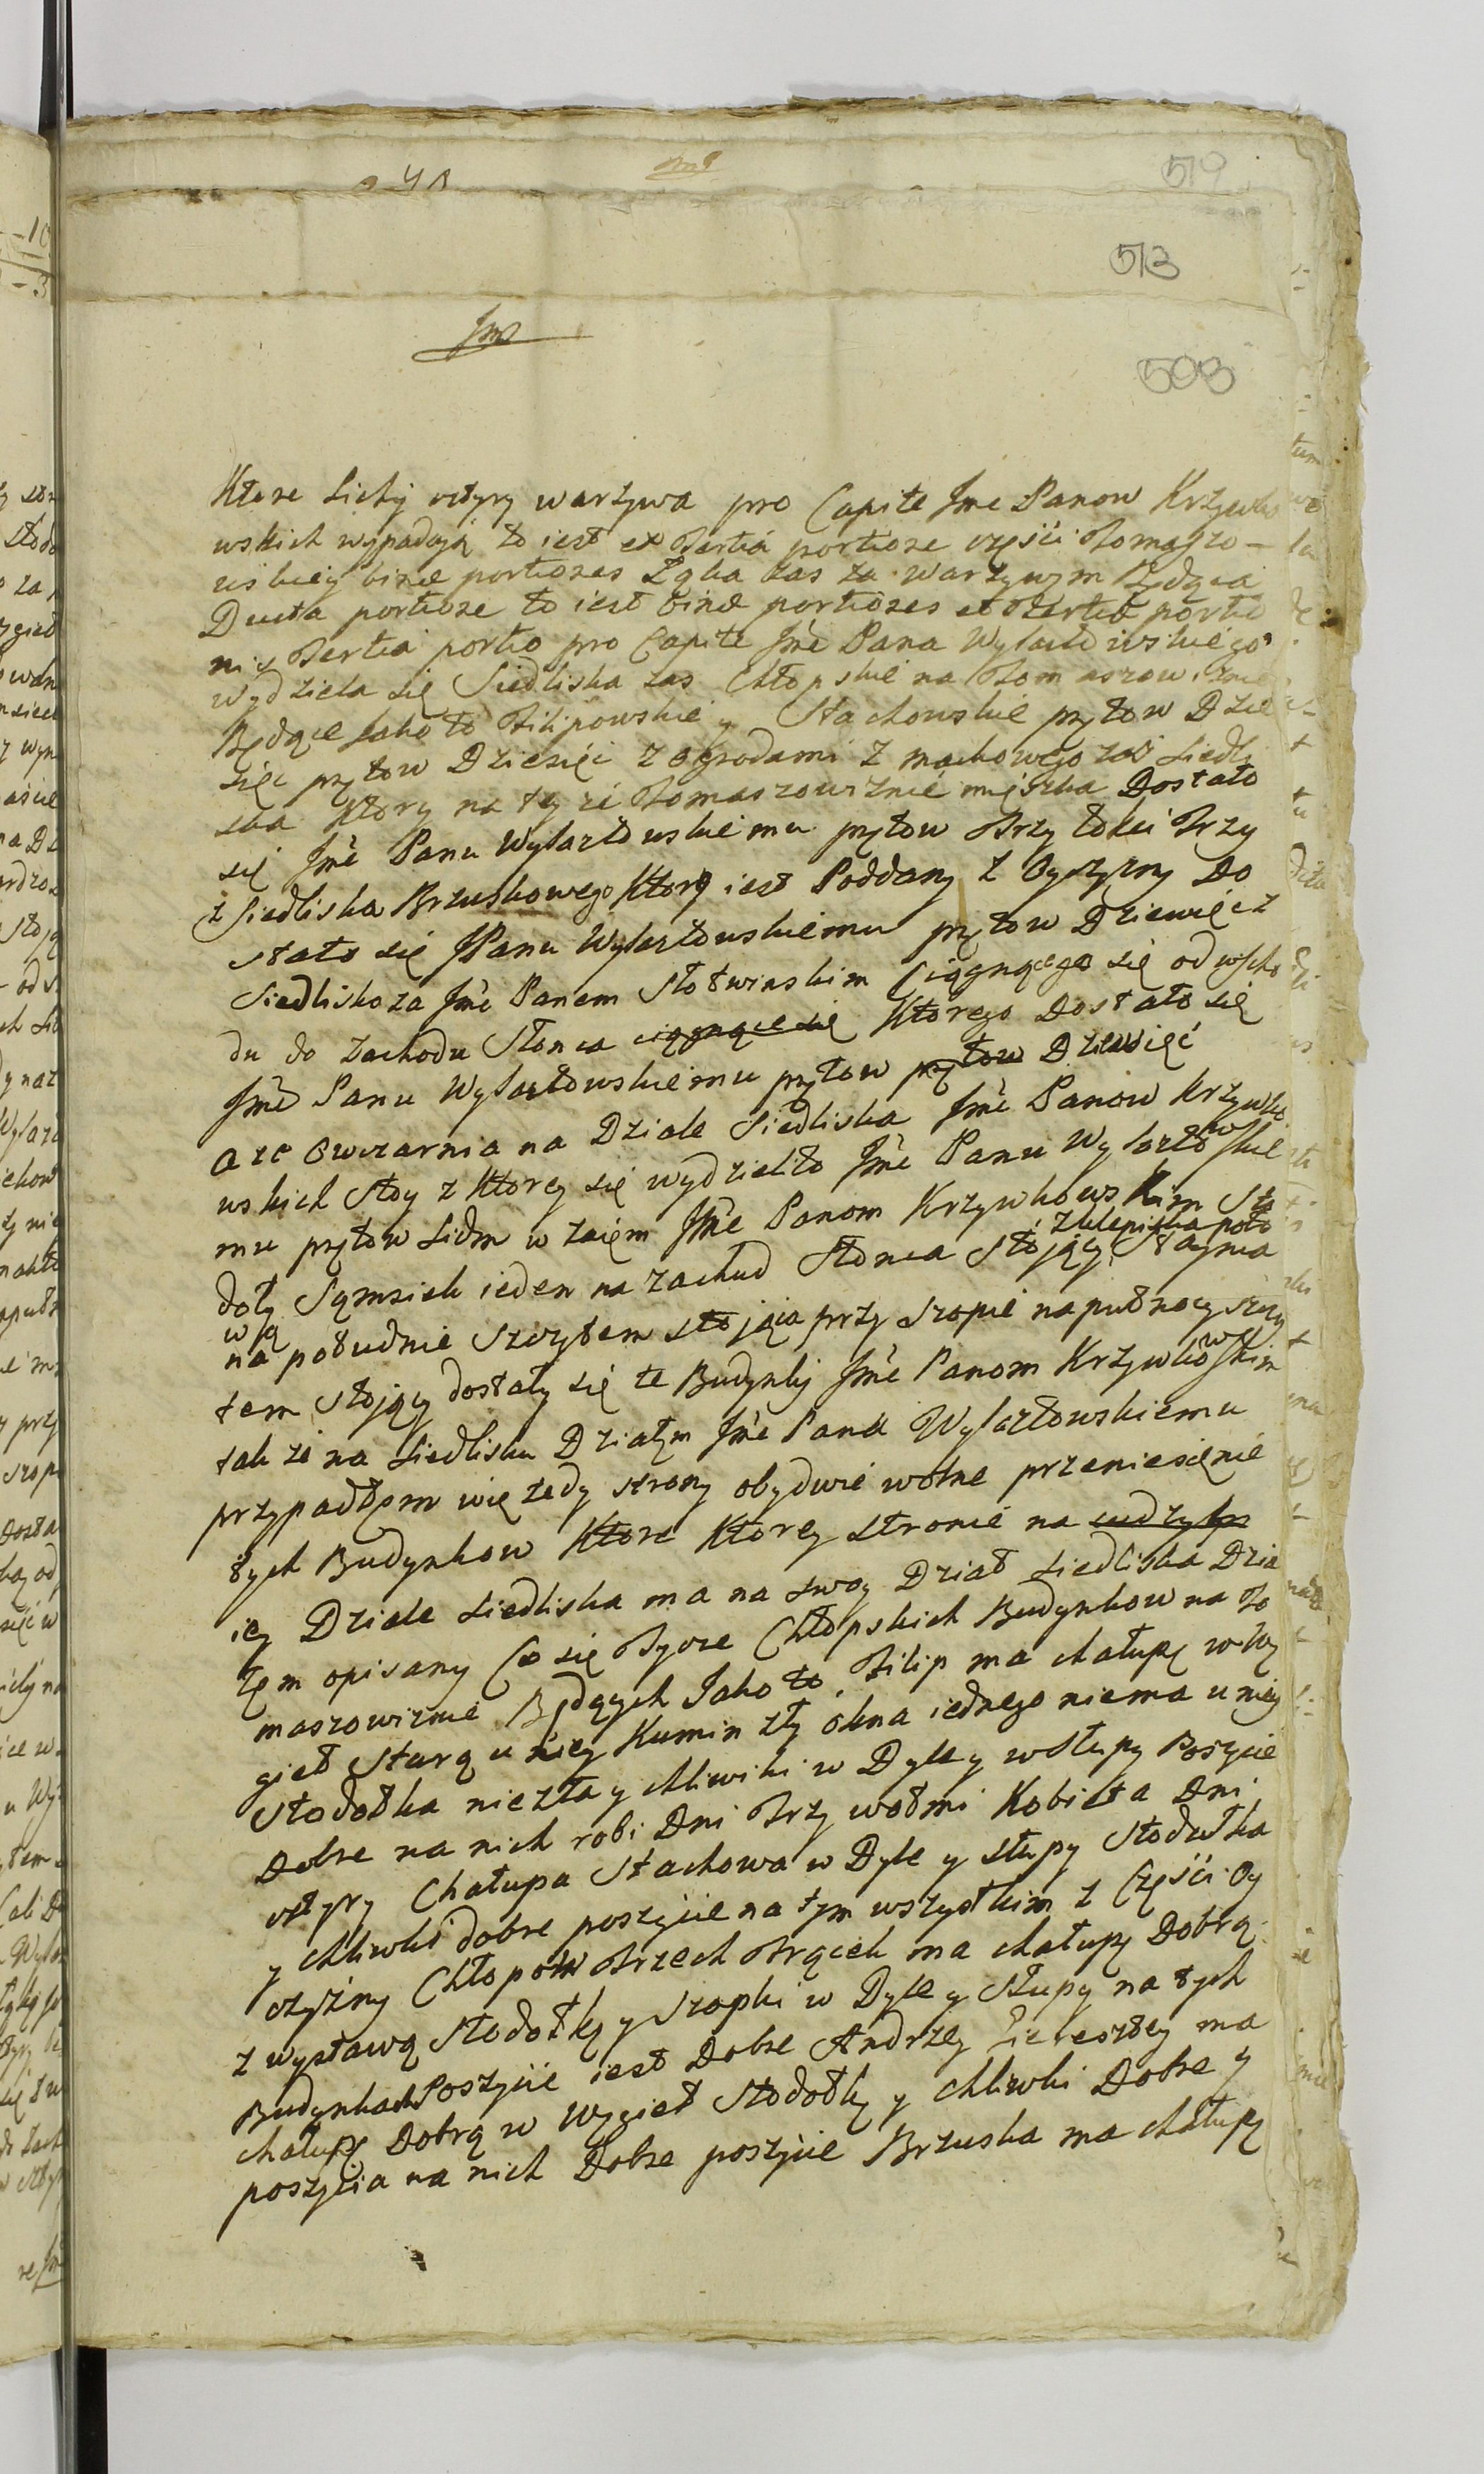 519
513
Jmć
503
Ktore Lichy cztyry warzywa pro Capite Jmc Panow Krzywko
wskich wypadają to iest ex Tertia portione części Tomaszo-
wskiey binæ portiones Łąka zas za Warzywem Będąca
Ducta portione to iest binæ portiones ex Tertia portio
nis Tertia portio pro Capite Jmć Pana Wylazłowskiego
wydziela się Siedliska zas Chłopskie na Tomaszowiznie
Będące Jako to Filipowskie y Stachowskie prętow Dzie
sięc prętow Dziesięć z ogrodami z machowego zaś Siedli
ska Ktory na tey ze Tomaszowiznie mięszka Dostało
się Jmć Panu Wylazłowskiemu prętow Trzy łokci Trzy
z Siedliska Brzuskowego Ktory iest Poddany z Oyczyzny Do
stało się JPanu Wylazłowskiemu prętow Dziewięć z
Siedliska za Jmć Panem Słotwinskim Ciągnącego się od wscho
du do Zachodu Słonca ciągnące się Ktorego Dostało się
Jmć Panu Wylazłowskiemu prętow prętow Dziewięć
A ze Owczarnia na Dziale Siedliska Jmć Panow Krzywko
wskich Stoy z Ktorey się wydzieliło Jmć Panu Wylazłowskie
mu prętow siedm w zaiem Jmć Panom Krzywkowskim Sto
doły Sąmsiek ieden na zachud Słonca Stojący z klepiska poło
wą Staynia
na południe Szczytem stojąca przy Szopie na pułnocy szczy
tem Stojący dostały się te Budynky Jmć Panom Krzywkowskim
tak ze na Siedlisku Działem Jmć Pana Wylazłowskiemu
przypadłem więc tedy strony obydwie wolne przeniesienie
tych Budynkow Ktore Ktorey stronie na cudzym
iey Dziele siedliska ma na swoy Dział siedliska Dzia
łem opisany Co się Tycze Chłopskich Budynkow na To
maszowiznie Będących Jako to Filip ma chałupę w Wę
gieł Starą u niey Kumin zły okna iednego niema u niey
Stodołka niezła y chliwiki w Dyle y w Słupy Poszycie
Dobre na nich robi Dni Trzy wołmi Kobieta Dni
cztyry Chałupa Stachowa w Dyle y słupy Stodułka
y chliwki dobre poszycie na tym wszystkim z Częsci Oy
czyzny Chłopow Trzech Frącek ma chałupę Dobrą
z wystawą Stodołkę y Szopki w Dyle y Słupy na tych
Budynkach Poszycie iest Dobre Andrzey ma
chałupę Dobrą w Węgieł Stodołkę y chliwki Dobre y
poszycia na nich Dobre poszycie Brzuska ma chałupę